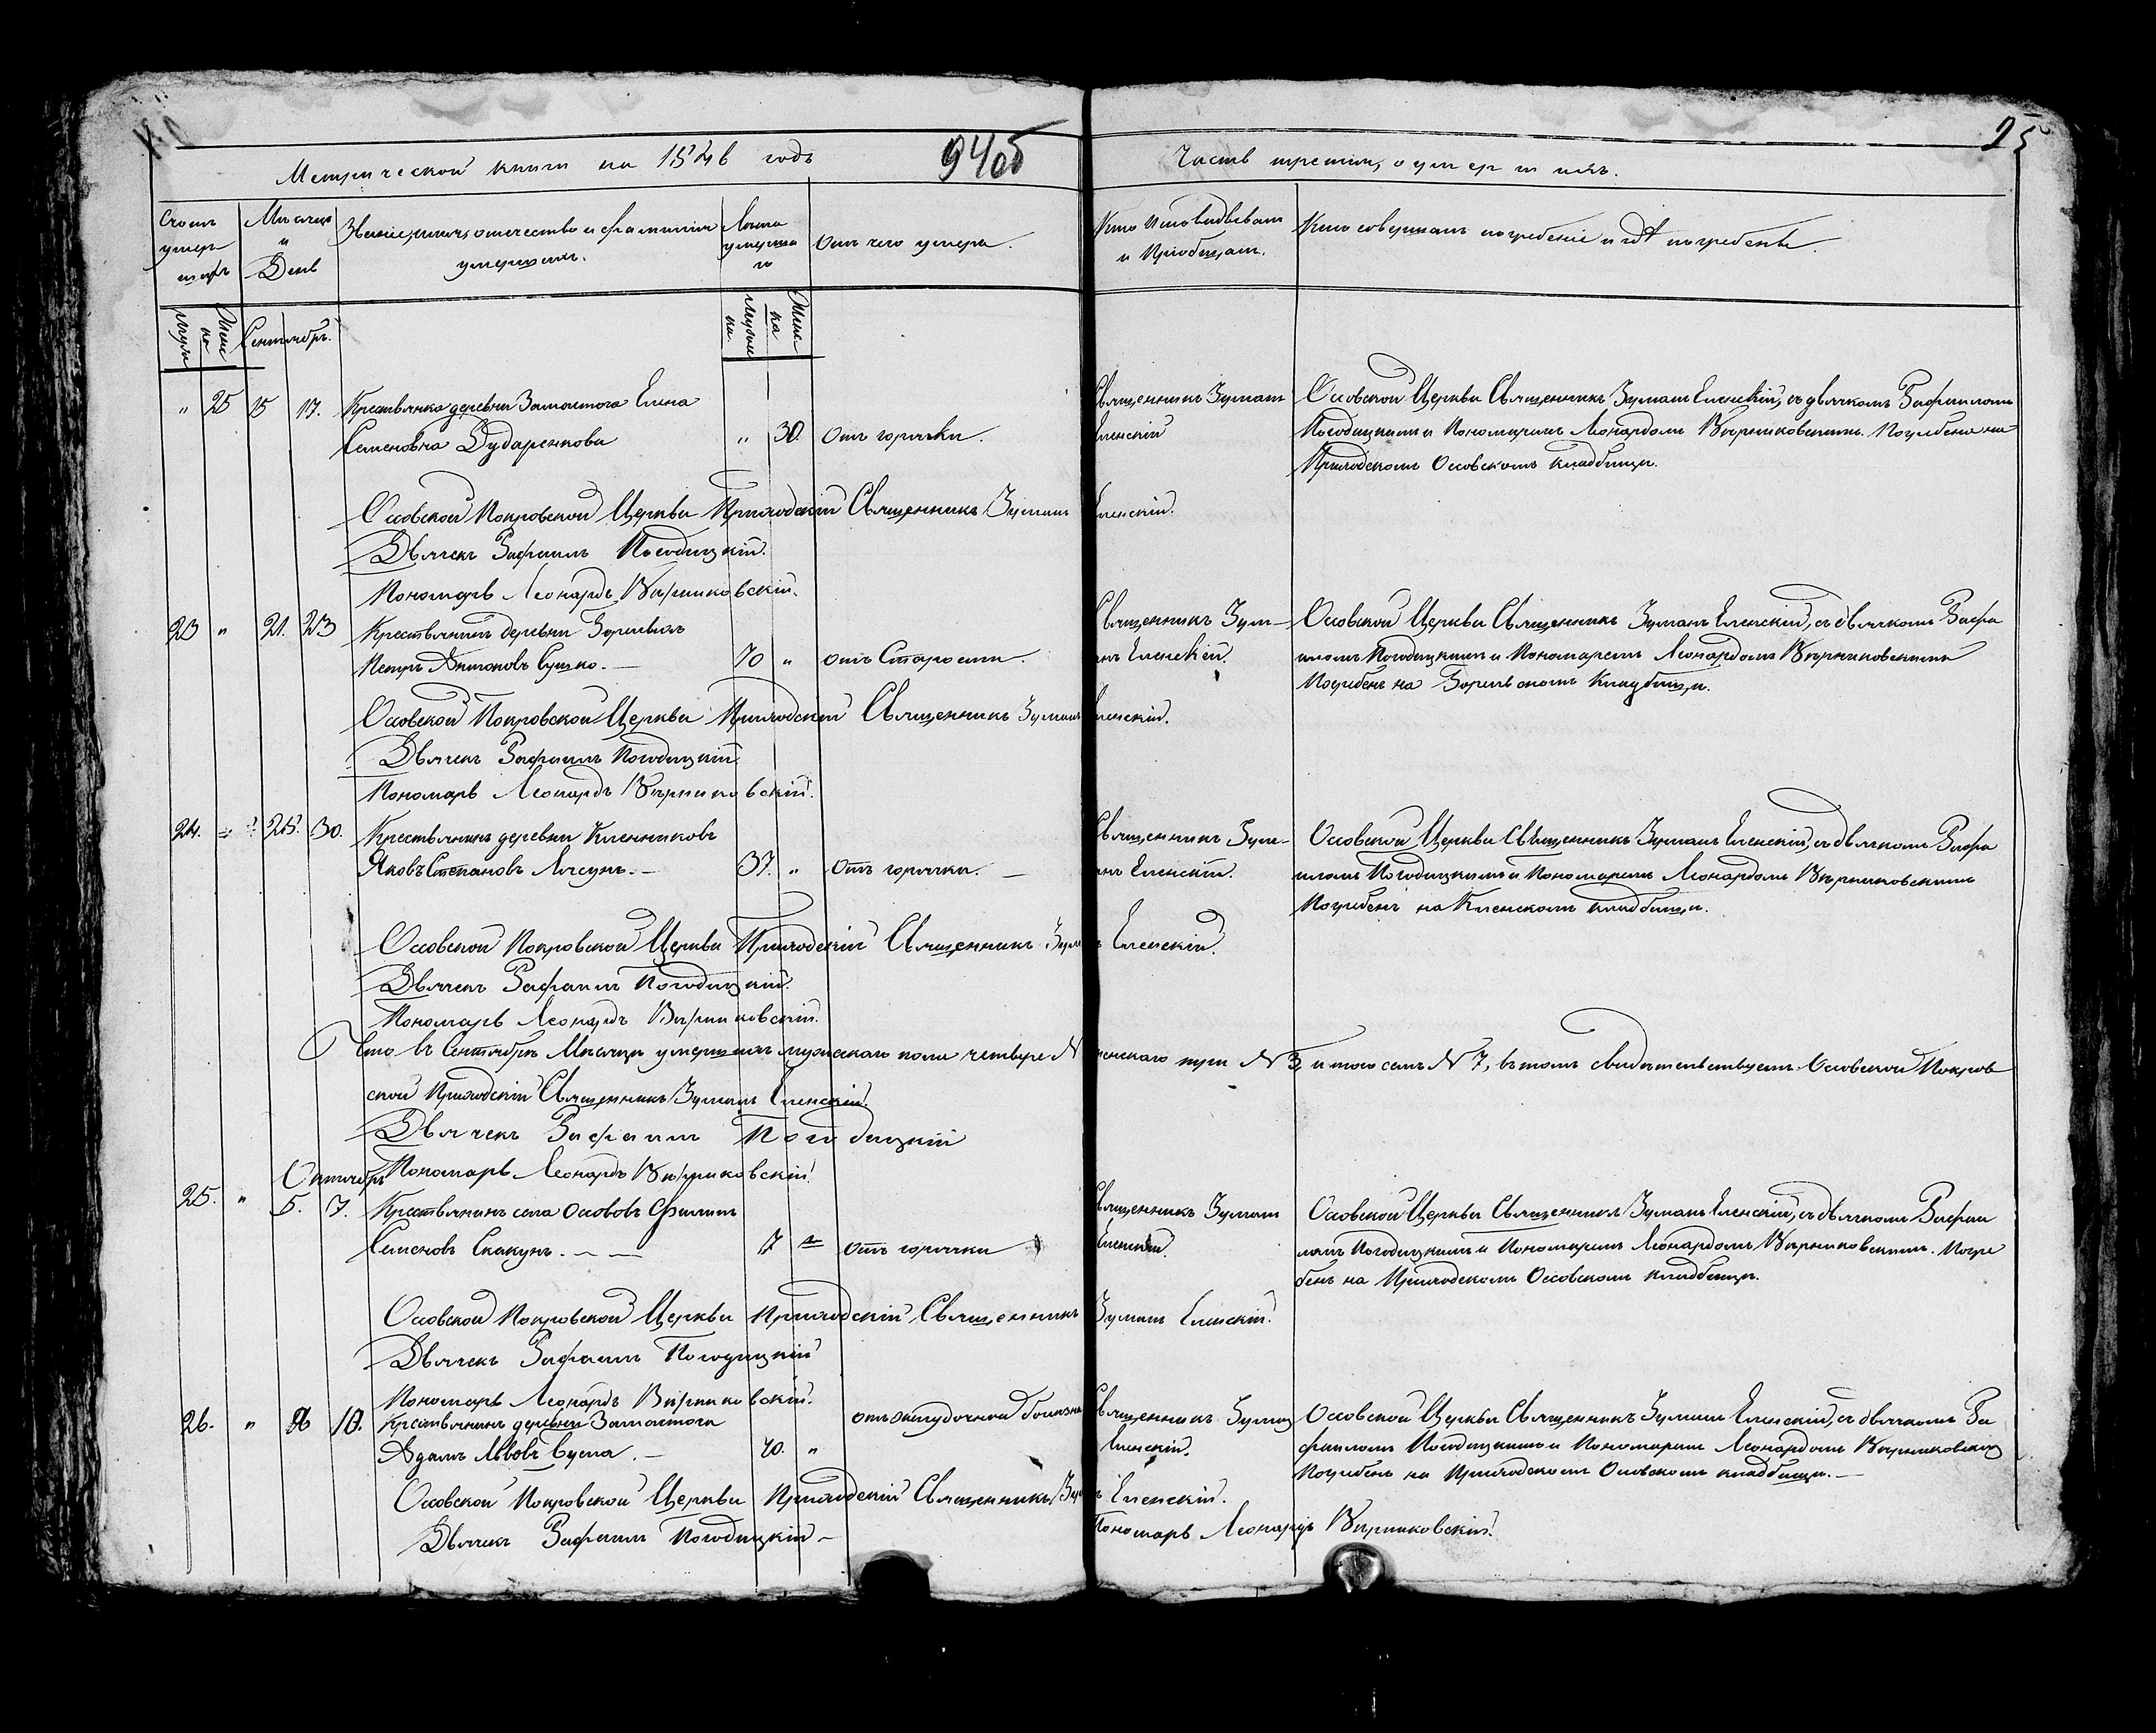 Метрической книги на 1846 годъ
94об
Часть третія, о умершихъ.
95
Счотъ умершихъ
Мѣсяцъ и День
Званіе, имя, отечество и фамилія умершихъ.
Лѣта умершаго
Отъ чего умеръ.
Кто исповѣдывалъ и Пріобщалъ.
Кто совершалъ погребеніе и гдѣ погребенъ.
Сентябрь.
" 25 15 17. Крестьянка деревни Замосточа Елена
Семеновна Дударенкова " 30. Отъ горячки.
Священникъ
Еленскій
Осовской Церкви Священникъ Еленскій, съ дьячкомъ Рафаиломъ
Погодицкимъ и Пономаремъ Леонардомъ Вѣрниковскимъ. Погребена на
Приходскомъ Осовскомъ кладбищѣ.
Осовской Покровской Церкви Приходскій Священникъ Еленскій.
Дьячекъ Рафаилъ Погодицкій.
Пономарь Леонардъ Вѣрниковскій.
23 " 21. 23 Крестьянинъ деревни
Петръ Антоновъ Сушко. — 70 " отъ Старости.
Священникъ
Еленскій.
Осовской Церкви Священникъ Еленскій, съ дьячкомъ Рафа
иломъ Погодицкимъ и Пономаремъ Леонардомъ Вѣрниковскимъ
Погребенъ на Кладбищѣ.
Осовской Покровской Церкви Приходскій Священникъ Еленскій.
Дьячекъ Рафаилъ Погодицкій
Пономарь Леонардъ Вѣрниковскій.
24. 28. 30. Крестьянинъ деревни Кленниковъ
Яковъ Степановъ Лясунъ. — 37. " Отъ горячки. —
Священникъ
Еленскій.
Осовской Церкви Священникъ Еленскій, съ дьячкомъ Рафа
иломъ Погодицкимъ и Пономаремъ Леонардомъ Вѣрниковскимъ
Погребенъ на Кленскомъ кладбищѣ.
Осовской Покровской Церкви Приходскій Священникъ Еленскій.
Дьячекъ Рафаилъ Погодицкій.
Пономарь Леонардъ Вѣрниковскій.
Что въ Сентябрѣ Мѣсяцѣ умершихъ мужескаго пола четыре N женскаго три N 3, итого семь N 7, въ томъ свидѣтельствуемъ. Осовской Покров
ской Приходскій Священникъ Еленскій.
Дьячекъ Рафаилъ Погодицкій
Пономарь Леонардъ Вѣрниковскій.
Октябрь
25. " 5. 7. Крестьянинъ села Осововъ Филипъ
Семеновъ Скакунъ. — 7 " Отъ горячки
Священникъ
Еленскій.
Осовской Церкви Священникъ Еленскій, съ дьячкомъ Рафаи
ломъ Погодицкимъ и Пономаремъ Леонардомъ Вѣрниковскимъ. Погре
бенъ на Приходскомъ Осовскомъ кладбищѣ.
Осовской Покровской Церкви Приходскій Священникъ Еленскій.
Дьячекъ Рафаилъ Погодицкій
Пономарь Леонардъ Вѣрниковскій.
26. " 8 10. Крестьянинъ деревни Замосточа
Адамъ Львовъ Бусла. — 40. "
Священникъ
Еленскій.
Осовской Церкви Священникъ Еленскій, съ дьячкомъ Ра
фаиломъ Погодицкимъ и Пономаремъ Леонардомъ Вѣрниковскимъ
Погребенъ на Приходскомъ Осовскомъ кладбищѣ. —
Осовской Покровской Церкви Приходскій Священникъ Еленскій.
Дьячекъ Рафаилъ Погодицкій — Пономарь Леонардъ Вѣрниковскій.